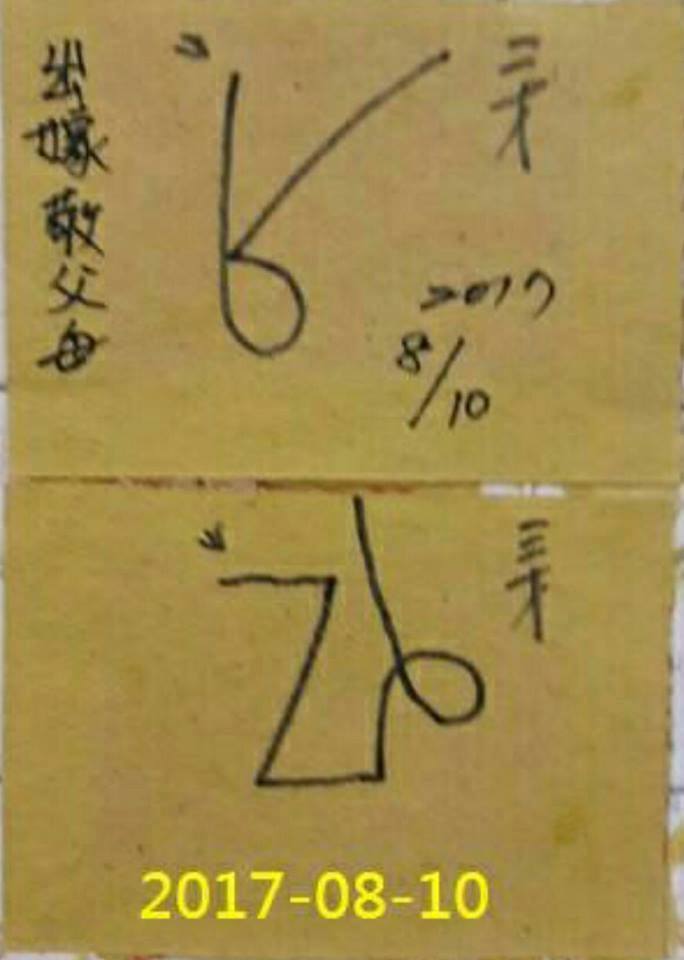 三才
出嫁敬父母
2017
8/10
三才
2017-08-10